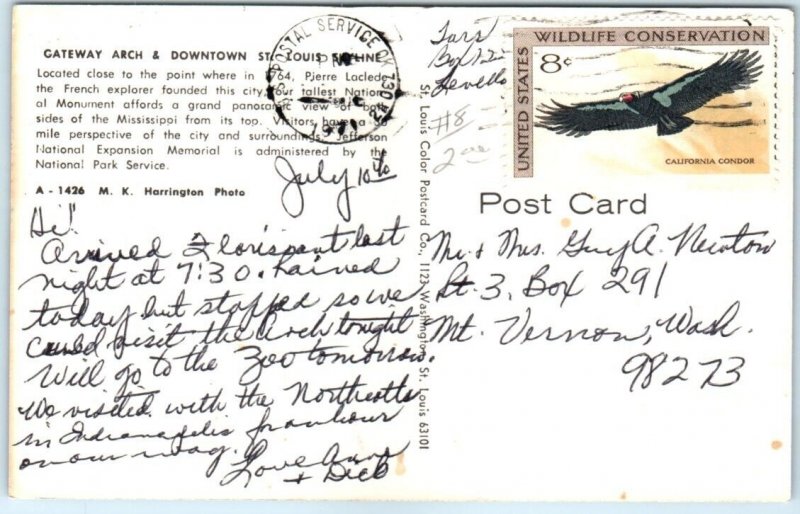 GATEWAY ARCH & DOWNTOWN ST. LOUIS SKYLINE
Located close to the point where in 1764, Pierre Laclede
the French explorer founded this city, our tallest Nation-
al Monument affords a grand panoramic view of both
sides of the Mississippi from its top. Visitors have a 30
mile perspective of the city and surroundings. Jefferson
National Expansion Memorial is administered by the
National Park Service.
A - 1426 M. K. Harrington Photo
July 10th
Hi!
Arrived Florissant last
night at 7:30. Rained
today but stopped so we
could visit the Arch tonight
Will go to the Zoo tomorrow.
We visited with the Northcotts
in Indianapolis for an hour
on our way.
Love Anna
+ Dick
St. Louis Color Postcard Co., 1123 Washington, St. Louis 63101
U.S. POSTAL SERVICE
1971
Box 12
#8
UNITED STATES
WILDLIFE CONSERVATION
8¢
CALIFORNIA CONDOR
Post Card
Mr. + Mrs. Guy A. Newton
Rt. 3, Box 291
Mt. Vernon, Wash.
98273